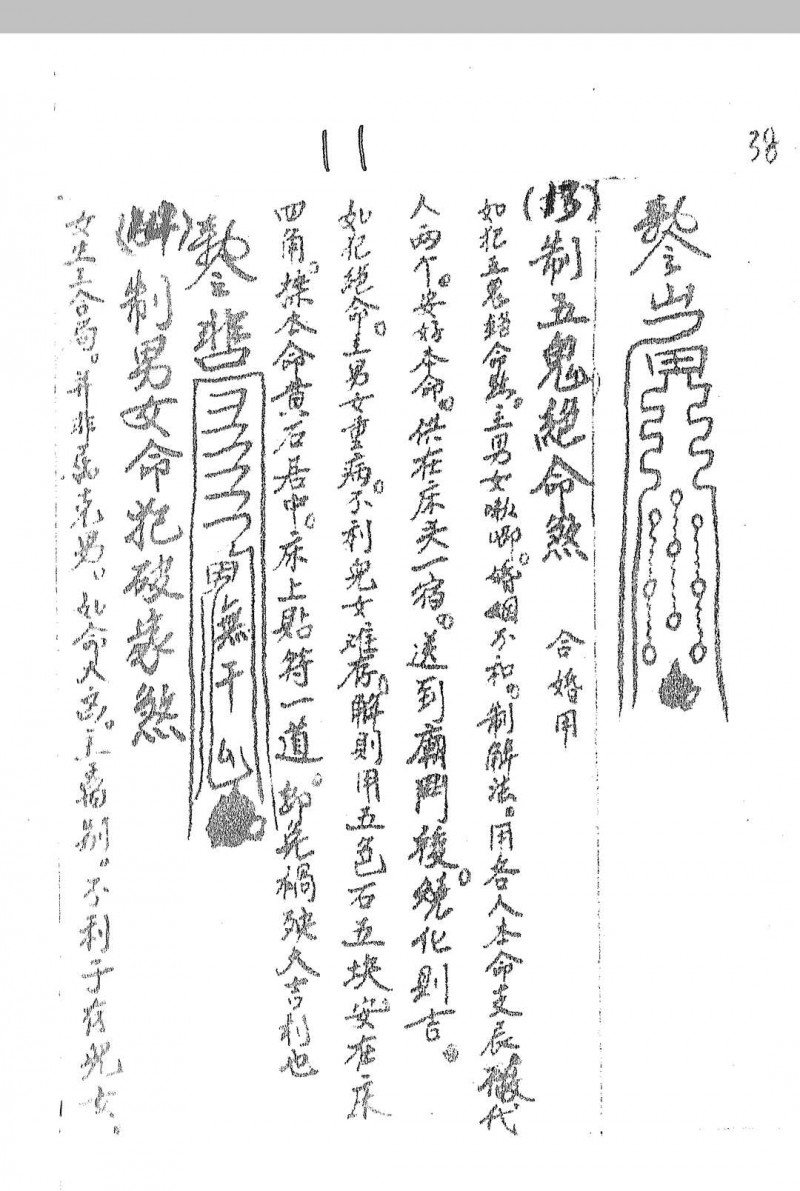 38
11
勅令
(13)制五鬼絕命煞 合婚用
如犯五鬼錯命煞。主男女啾唧。婚姻不和。制解法。用各人本命支辰做代
人兩个。安好本命。供在床头一宿。送到廟門後。燒化則吉。
如犯絕命。主男女重病。不利兒女难存。解則用五色石五块。安在床
四角。採本命黄石居中。床上貼符一道。卽免禍殃大吉利也
勅令 無干
(14)制男女命犯破家煞
女生三合局。并非 克男。如命大凶。主 别。不利于 兒女。